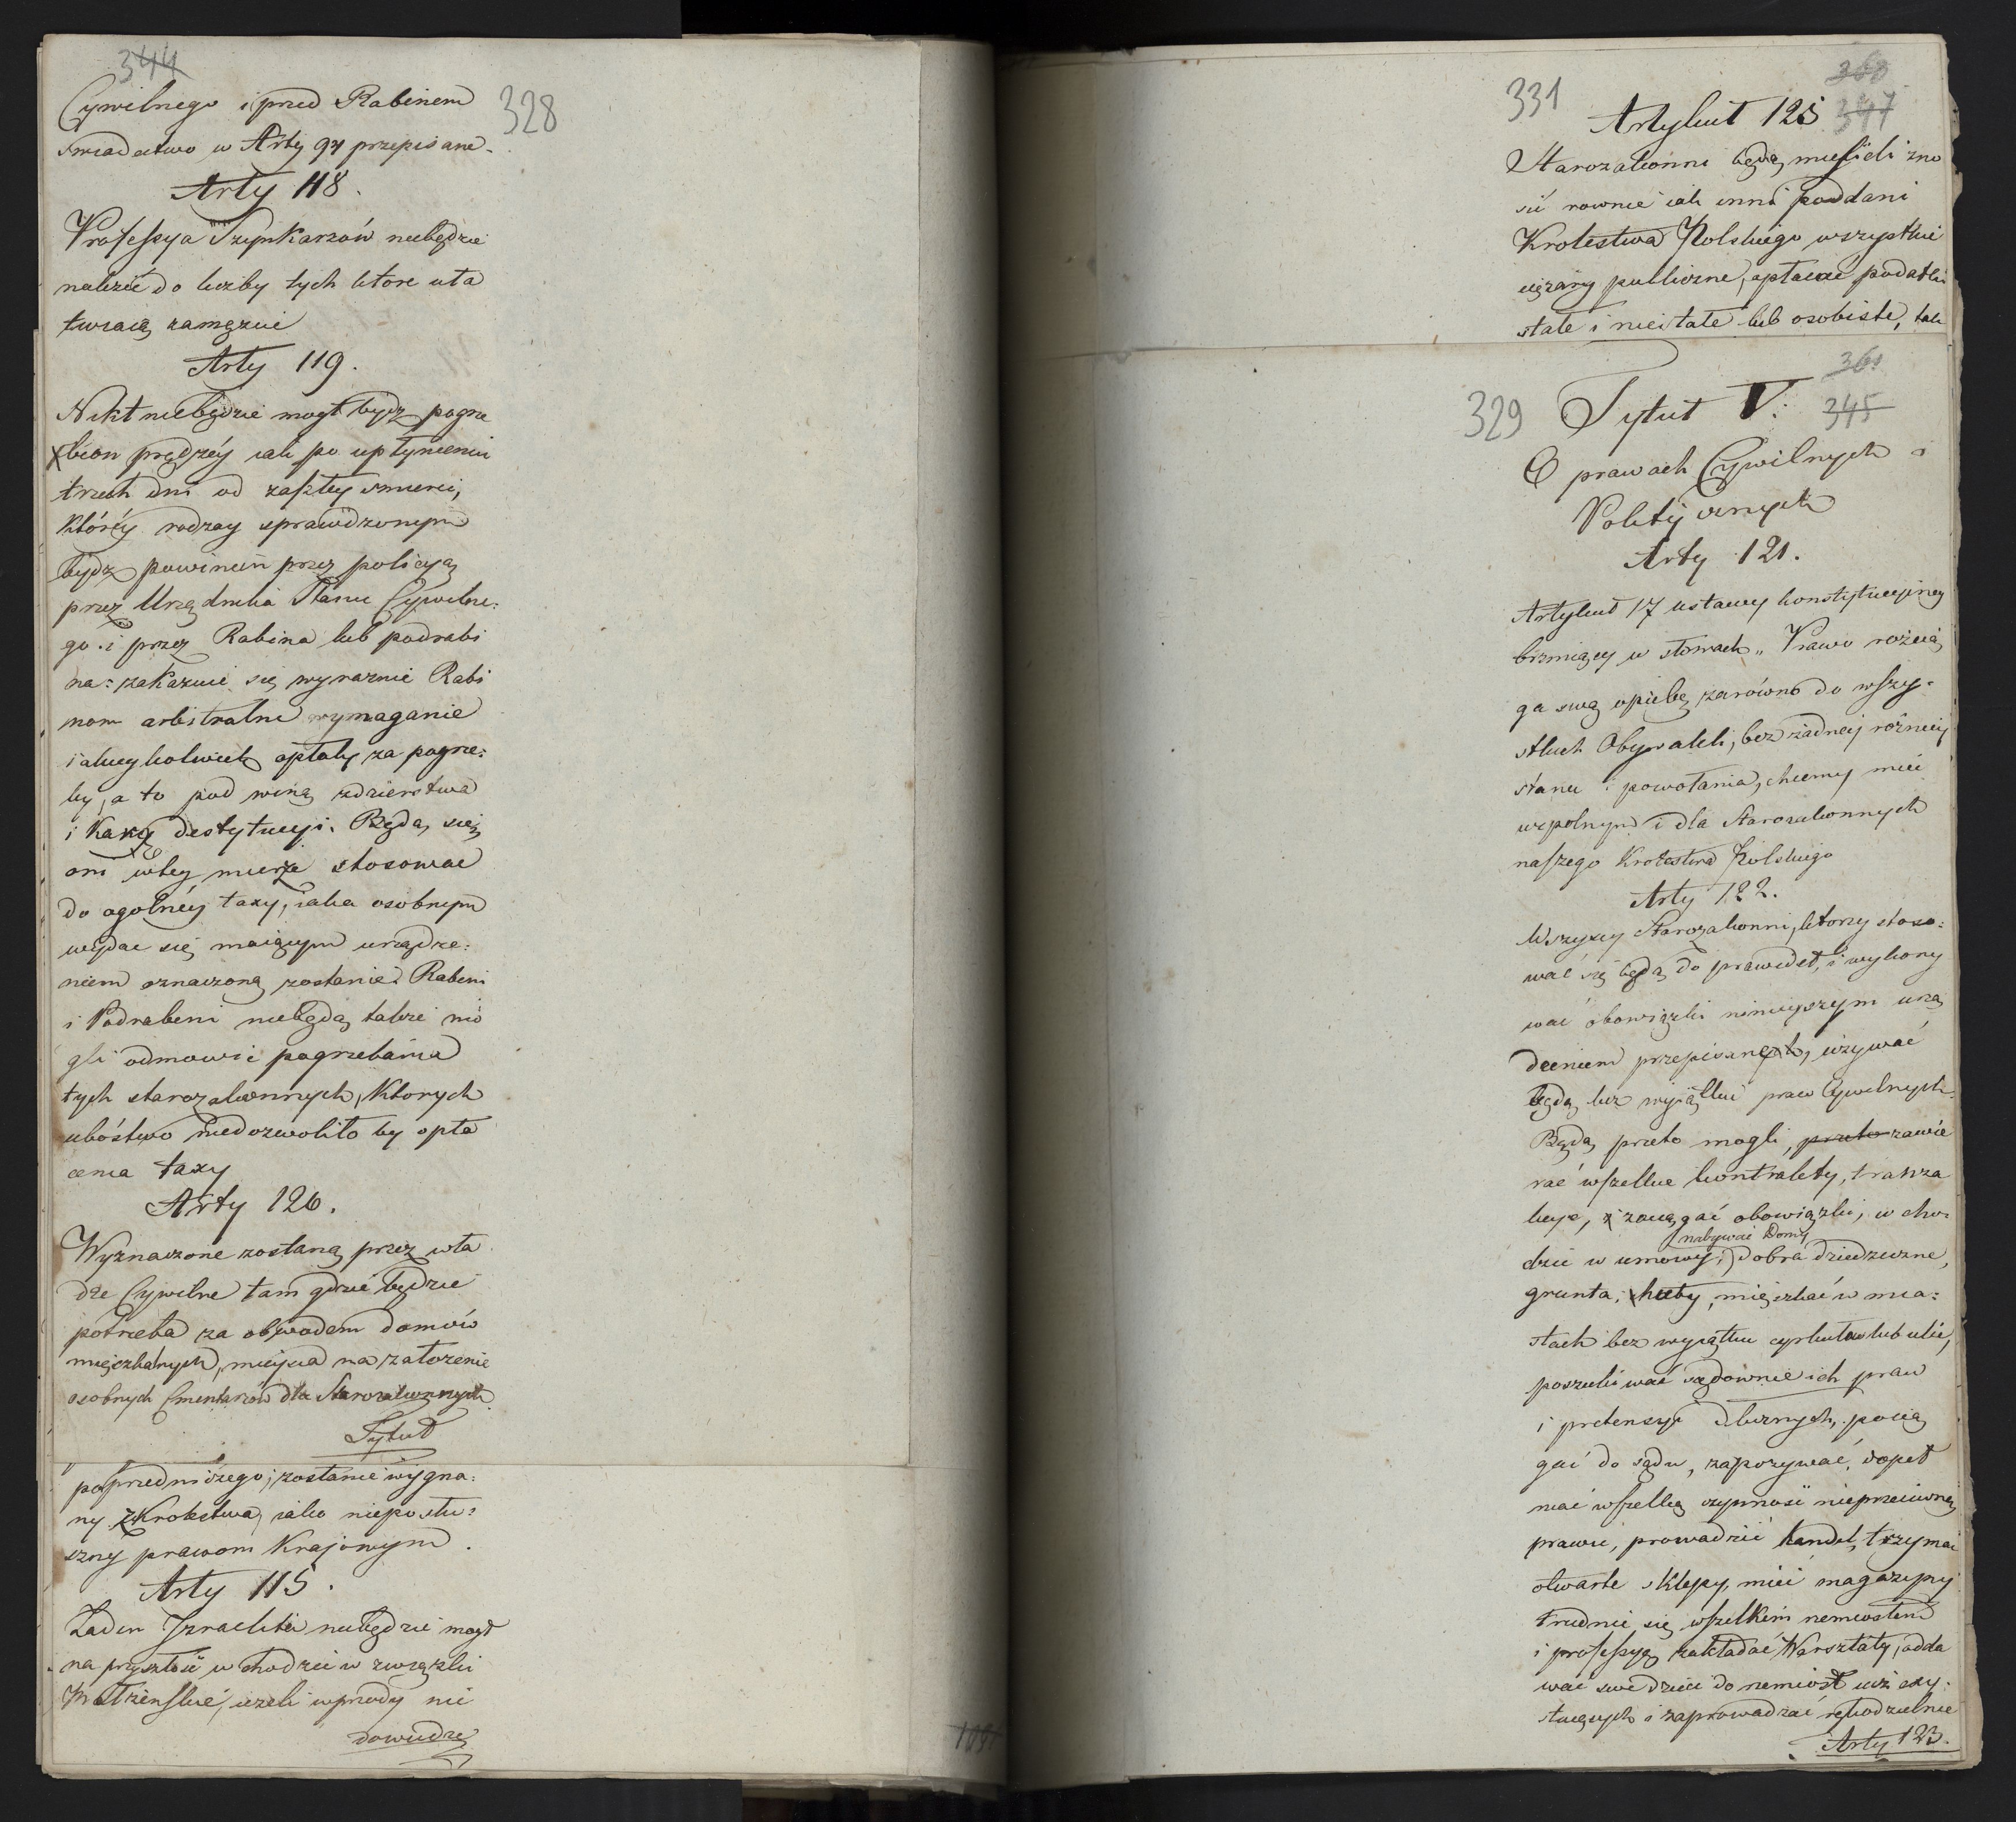 344
328
Cywilnego i przed Rabinem
swiadectwo w Arty 97 przepisane.
Arty 118.
Professya Szynkarzów niebędzie
należeć do liczby tych ktore uła
twiaią zamęzcie
Arty 119.
Nikt niebędzie mogł bydz pogrze
bion prędzéy iak po upłynieniu
trzech dni od zaszłey smierci,
któréy rodzay sprawdzonym
bydz powinień przez policyą
przez Urzędnika Stanu Cywilne:
go i przez Rabina lub podrabi
na: zakazuie się wyraznie Rabi
nom arbitralne wymaganie
iakieykolwiek opłaty za pogrze:
by, a to pod winą zdzierstwa
i Karą destytucyi. Będą się
oni w tey mierze stosować
do ogolnéy taxy, iaka osobnym
wydać się maiącym urządze:
niem oznaczoną zostanie. Rabini
i Podrabini niebędą także mo
gli odmowić pogrzebania
tych starozakonnych, Ktorych
ubóstwo niedozwoliło by opła
cenia taxy
Arty 120.
Wyznaczone zostaną przez wła
dze Cywilne tam gdzie będzie
potrzeba za obwodem domów
mięszkalnych, mieysca na założenie
osobnych Cmentarzów dla Starozakonnych
Tytuł
poprzedniczego; zostanie wygna:
ny z Krolestwa, iako nieposłu:
szny prawom Krajowym.
Arty 115.
Żaden Izraelita niebędzie mogł
na przyszłość wchodzić w związki
Małżeńskie, ieżeli wprzody nie
dowiedzie
331
368
347
Artykuł 125
Starozakonni będą musieli zno
sić rownie iak inni poddani
Krolestwa Polskiego wszystkie
ciężary publiczne, opłacać podatki
stałe i niestałe lub osobiste, tak
361
329
345
Tytuł V.
O prawach Cywilnych i
Politycznych
Arty 121.
Artykuł 17 ustawy konstytucyiney
brzmiący w słowach „ Prawo rozcią
ga swą opiekę zarówno do wszy-
stkich Obywateli, bez żadnej różnicy
stanu i powołania, chcemy mieć
wspolnym i dla Starozakonnych
naszego Krolestwa Polskiego
Arty 122.
Wszyscy Starozakonni, ktorzy stoso:
wać się będą do prawideł, i wykony
wać obowiązki ninieyszym urzą
dzeniem przepisanych, używać
będą bez wyiątku praw Cywilnych.
Będą przeto mogli, przeto zawie
rać wszelkie kontrakty, tranza
kcye, zaciągać obowiązki, w cho-
dzić w umowy; nabywać Domy, dobra dziedziczne,
grunta, huty, mięszkać w mia:
stach bez wyiątku cyrkułow lub ulic,
poszukiwać sądownie ich praw
i pretensyi dłużnych, pocią
gać do sądu, zapozywać, dopeł
niać wszelką czynność nieprzeciwną
prawu, prowadzić handel, trzymać
otwarte sklepy, mieć magazyny
trudnić się wszelkim rzemiosłem
i professyą zakładać Warsztaty, odda
wać swe dzieci do rzemiosł iuż exy:
stuiących i zaprowadzać rękodzielnie
Arty 123.